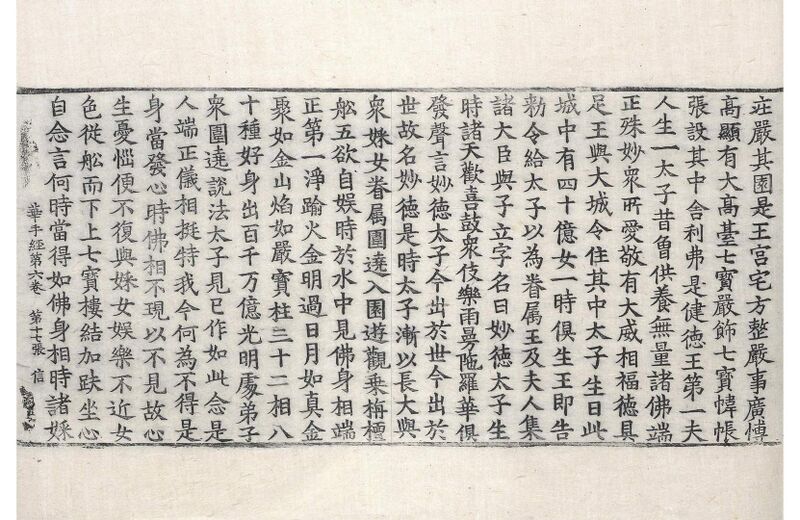 莊嚴其園是王宮宅方整嚴事廣博
高顯有大高臺七寶嚴飾七寶幃帳
張設其中舍利弗是健德王第一夫
人生一太子昔曾供養無量諸佛端
正殊妙衆所愛敬有大威相福德具
足王與大城令住其中太子生日此
城中有四十億女一時俱生王即告
勑令給太子以為眷属王及夫人集
諸大臣與子立字名曰妙德太子生
時諸天歡喜鼓衆伎樂雨曼陁羅華俱
發聲言妙德太子今出於世今出於
世故名妙德是時太子漸以長大與
衆婇女眷属圍遶入園遊觀乗栴檀
舩五欲自娛時於水中見佛身相端
正第一淨踰火金明過日月如真金
聚如金山焰如嚴寶柱三十二相八
十種好身出百千万億光明處弟子
衆圍遶說法太子見已作如此念是
人端正儀相挺特我今何為不得是
身當發心時佛相不現以不見故心
生憂惱便不復與婇女娛樂不近女
色從舩而下上七寶樓結加趺坐心
自念言何時當得如佛身相時諸婇
華手經第六卷 第十七張 信